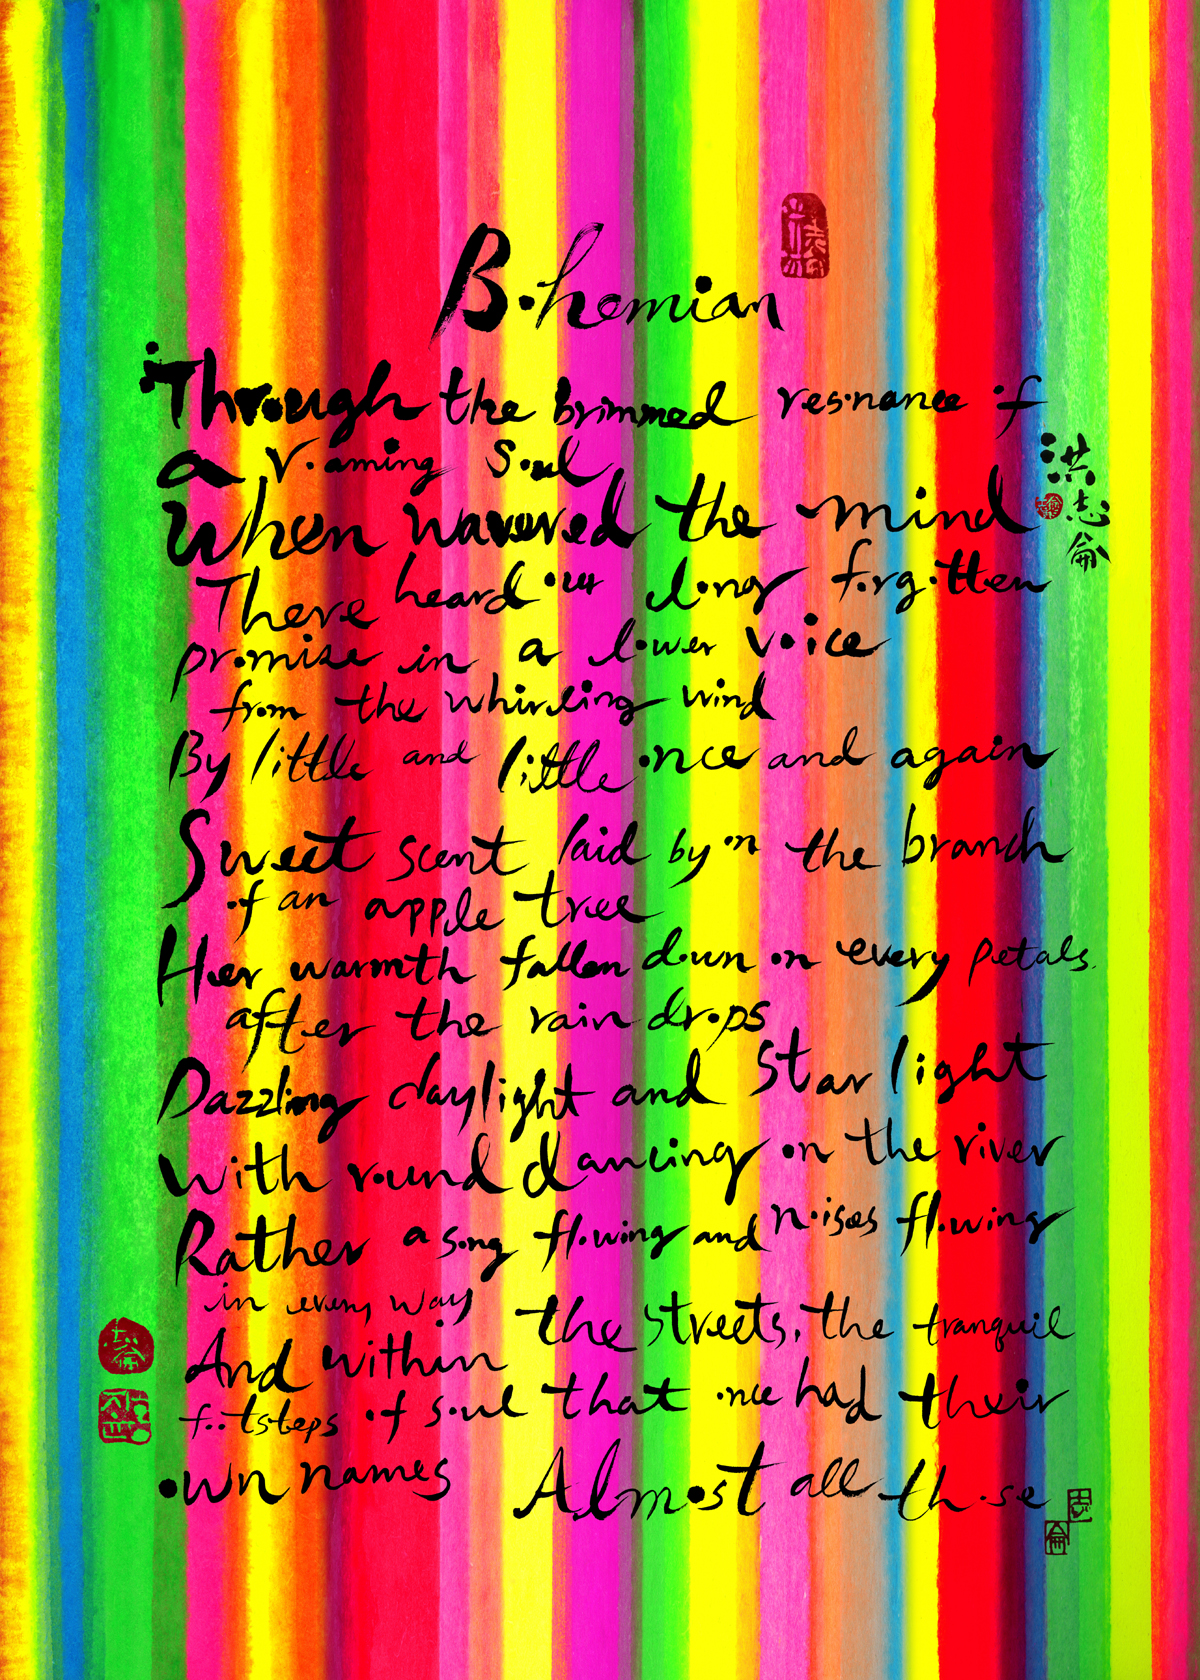 Bohemian
Through the brimmed resonance of
a roaming soul
When wavered the mind
There heard our long forgotten
promise in a lower voice
from the whirling wind
By little and little once and again
Sweet scent laid by on the branch
of an apple tree
Her warmth fallen down on every petals
after the rain drops
Dazzling daylight and Starlight
With round dancing on the river
Rather a song flowing and noises flowing
in every way
And within the streets, the tranquil
footsteps of soul that once had their
own names Almost all those
洪志侖